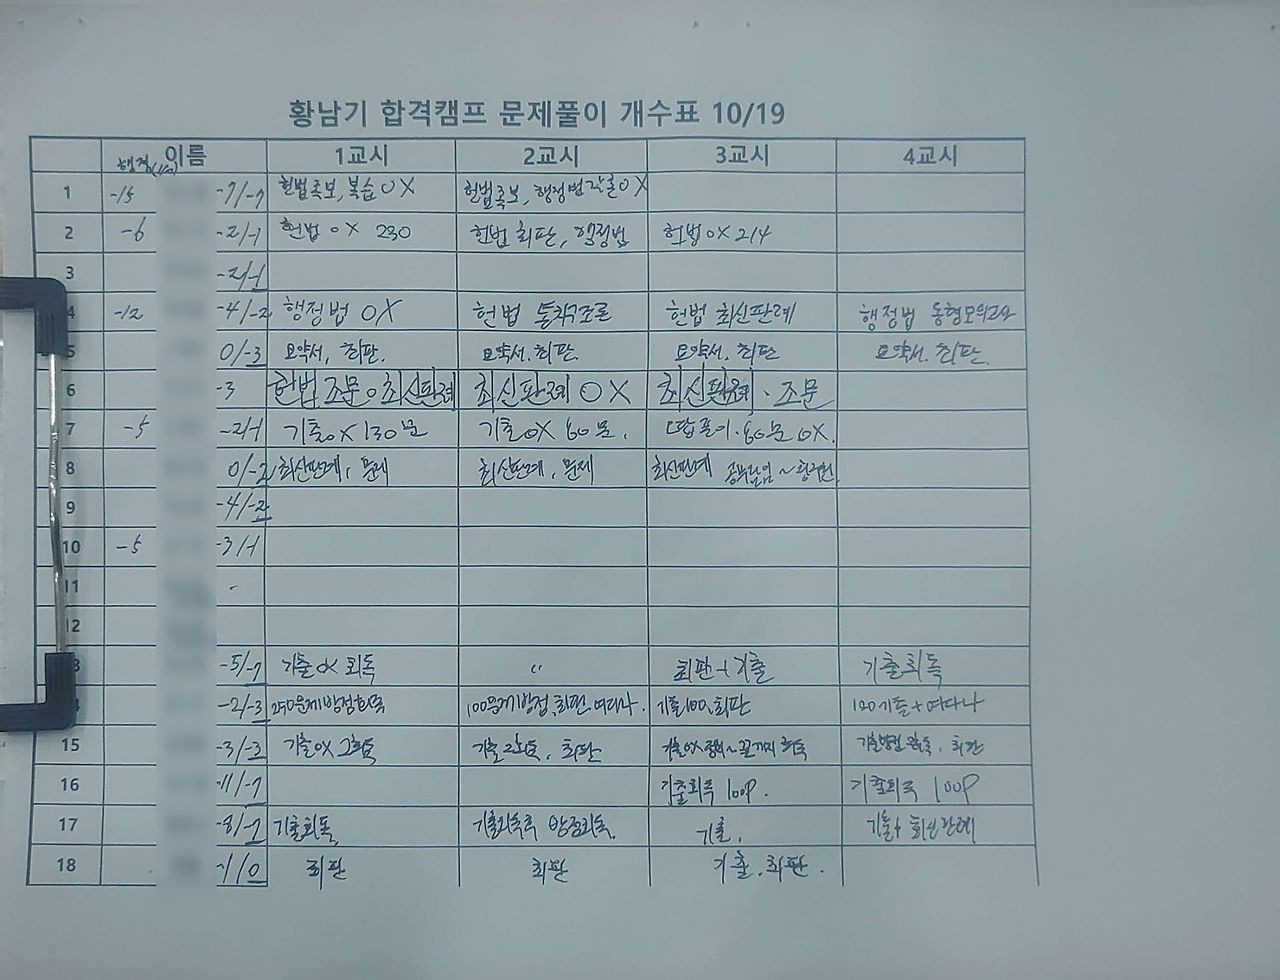 황남기 합격캠프 문제풀이 개수표 10/19
이름 1교시 2교시 3교시 4교시
1 -15 -7/-7 헌법족보, 복습OX 헌법족보, 행정법각론OX
2 -6 -2/-1 헌법 OX 230 헌법 최판, 행정법 헌법 OX 214
3 -2/-1
-12 -4/-2 행정법 OX 헌법 헌법 최신판례 행정법 동형모의고사
5 0/-3 요약서, 최판. 요약서. 최판. 요약서. 최판 요약서. 최판.
6 -3 헌법조문。최신판례 최신판례 OX 최신판례 · 조문
7 -5 -2/-1 기출OX 130문 기출OX 60문. 60문 OX.
8 0/-2 최신판례, 문제 최신판례, 문제 최신판례
9 -4/-2
10 -5 -3/-1
11 -
12
-5/-7 기출OX 회독 〃 최판 + 기출 기출회독
-2/-3 250문제 100문제 최판 기출100, 최판 100기출 +
15 -3/-3 기출OX 2회독 기출 2회독, 최판 기출OX 최판
16 -11/-7 기출회독 100P. 기출회독 100P
17 -8/-1 기출회독, 기출회독후 기출, 기출+ 최신판례
18 -1/0 최판 최판 기출, 최판.